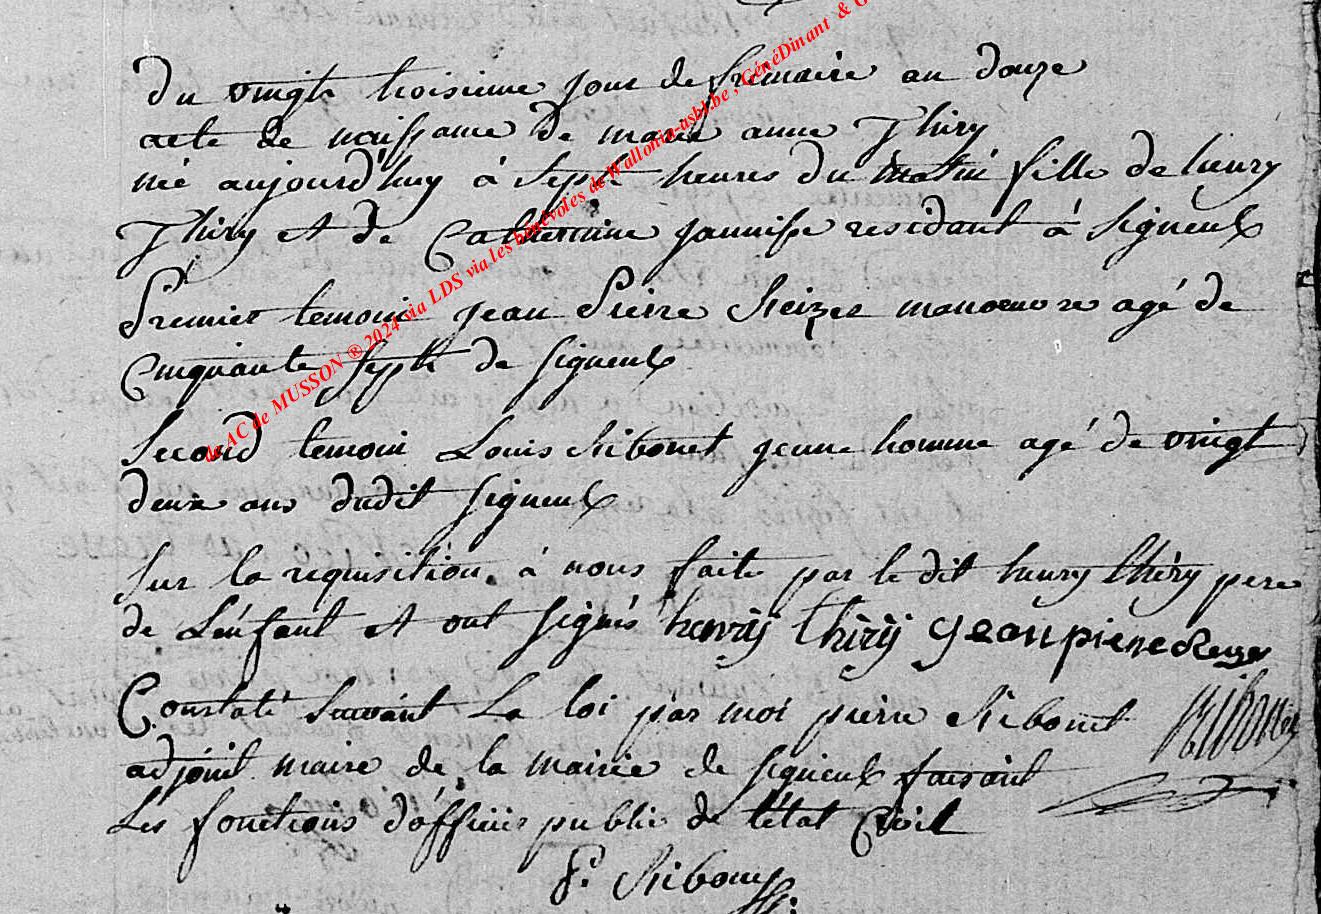 Du vingt troisieme jour de frimaire an douze
acte de naissance de marie anne Thiry
née aujourd'huy à Sept heures du matin fille de henry
Thiry et de Catherine jannisse residant à Signeulx
Premier temoin jean Pierre Reizer manoeuvre agé de
Cinquante Sept de Signeulx
Second temoin Louis Ribonet jeune homme agé de vingt
deux ans dudit Signeulx
Sur la requisition à nous faite par le dit henry thiry pere
de L'enfant et ont Signés henrÿ thirÿ jean piere Reizer
Constaté Suivant La loi par moi pierre Ribonet Ribonet
adjoint maire de la mairie de Signeulx faisant
Les fonctions d'officier public de l'état Civil
P. Ribonet
de AC de MUSSON ® 2024 via LDS via les bénévoles de Wallonia-asbl.be , GénéDinant & G